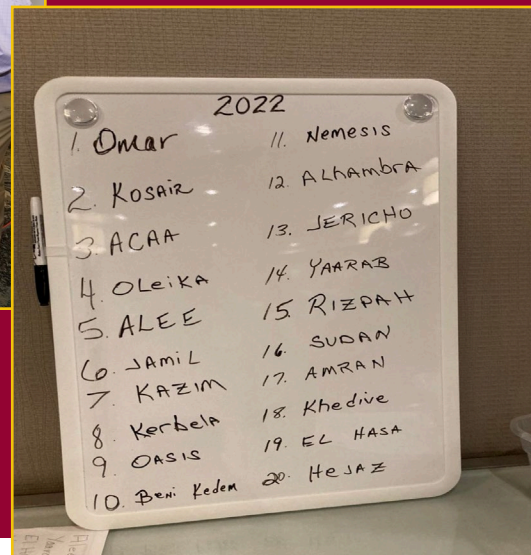 2022
1. Omar
2. KOSAIR
3. ACAA
4. OLeiKA
5. ALEE
6. JAMiL
7. KAZIM
8. KerbelA
9. OASIS
10. Beni Kedem
11. Nemesis
12. ALhAmbrA
13. JERICHO
14. YAARAB
15. RIZPAH
16. SUDAN
17. AMRAN
18. Khedive
19. EL HASA
20. HeJAZ